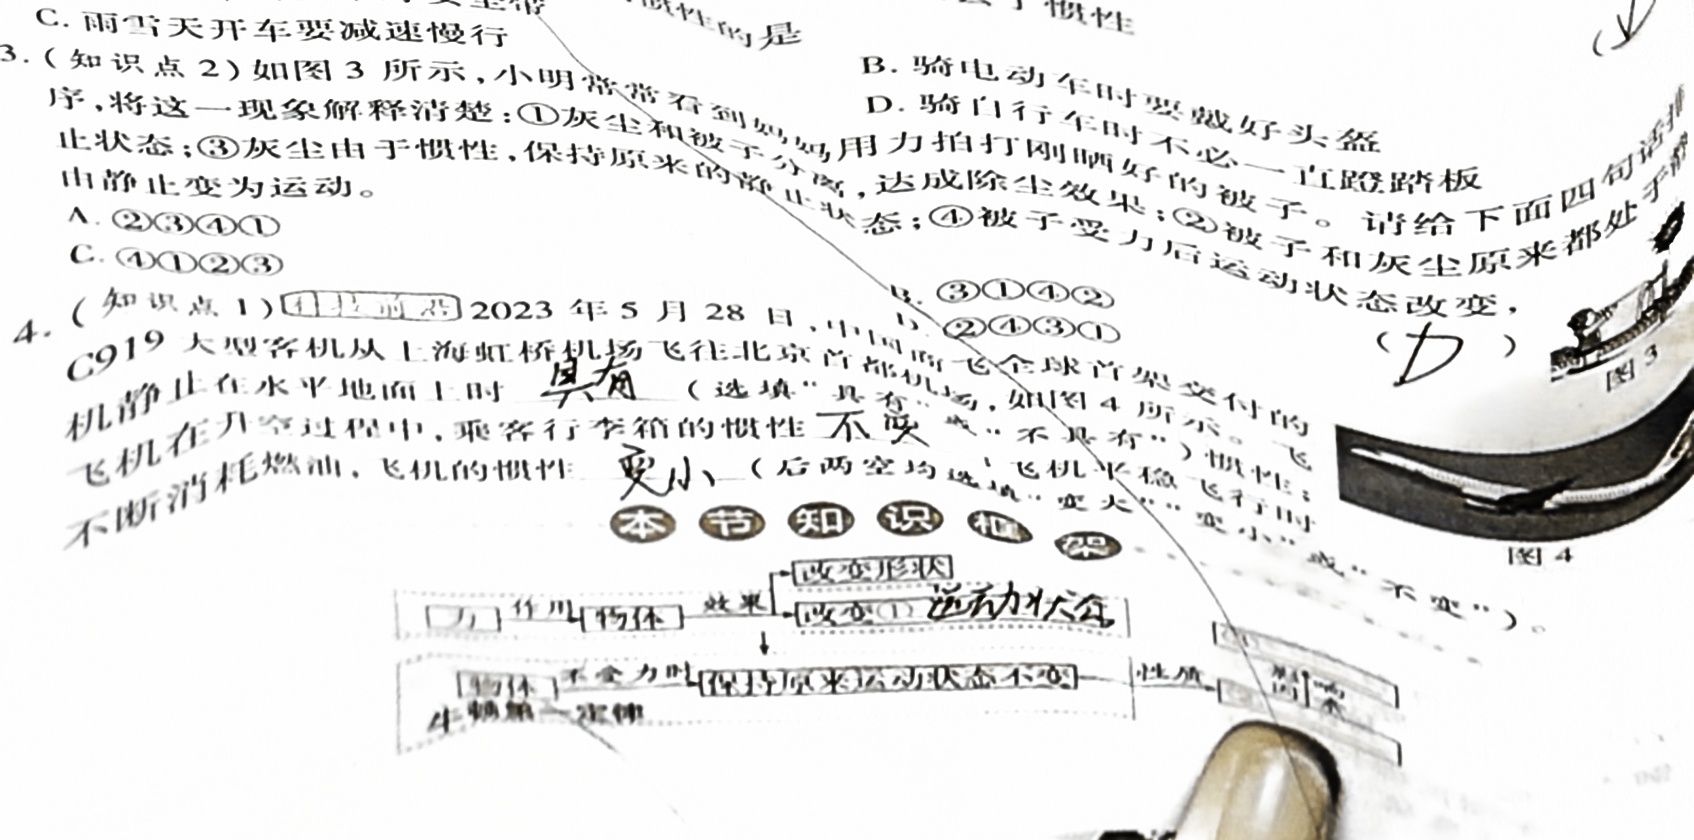 C. 雨雪天开车要减速慢行
惯性的是
惯性
B. 骑电动车时要戴好头盔
D. 骑自行车时不必一直蹬踏板
3. (知识点2)如图3所示,小明常常看到妈妈用力拍打刚晒好的被子。请给下面四句话排
序,将这一现象解释清楚:①灰尘和被子分离,达成除尘效果;②被子和灰尘原来都处于静
止状态;③灰尘由于惯性,保持原来的静止状态;④被子受力后运动状态改变,
由静止变为运动。
( D )
A. ②③④①
B. ③①④②
C. ④①②③
D. ②④③①
图3
4. (知识点1) 2023年5月28日,中国商飞全球首架交付的
C919大型客机从上海虹桥机场飞往北京首都机场,如图4所示。飞
机静止在水平地面上时 具有 (选填“具有”或“不具有”)惯性;
飞机在升空过程中,乘客行李箱的惯性 不变 ;飞机平稳飞行时
不断消耗燃油,飞机的惯性 变小 (后两空均选填“变大”“变小”或“不变”)。
图4
本节知识框架
力 作用 物体 效果 改变形状
改变① 运动状态
物体 不受力时 保持原来运动状态不变 性质
牛顿第一定律
影响
因素